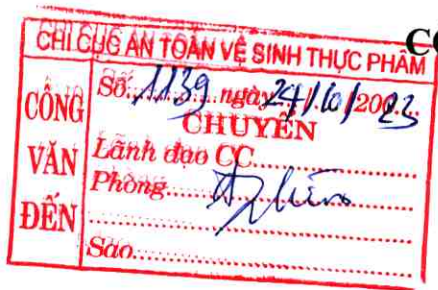 CHI CỤC AN TOÀN VỆ SINH THỰC PHẨM
CÔNG VĂN ĐẾN
Số: 1139 ngày 24/10/2023
CHUYỂN
Lãnh đạo CC
Phòng
Sao